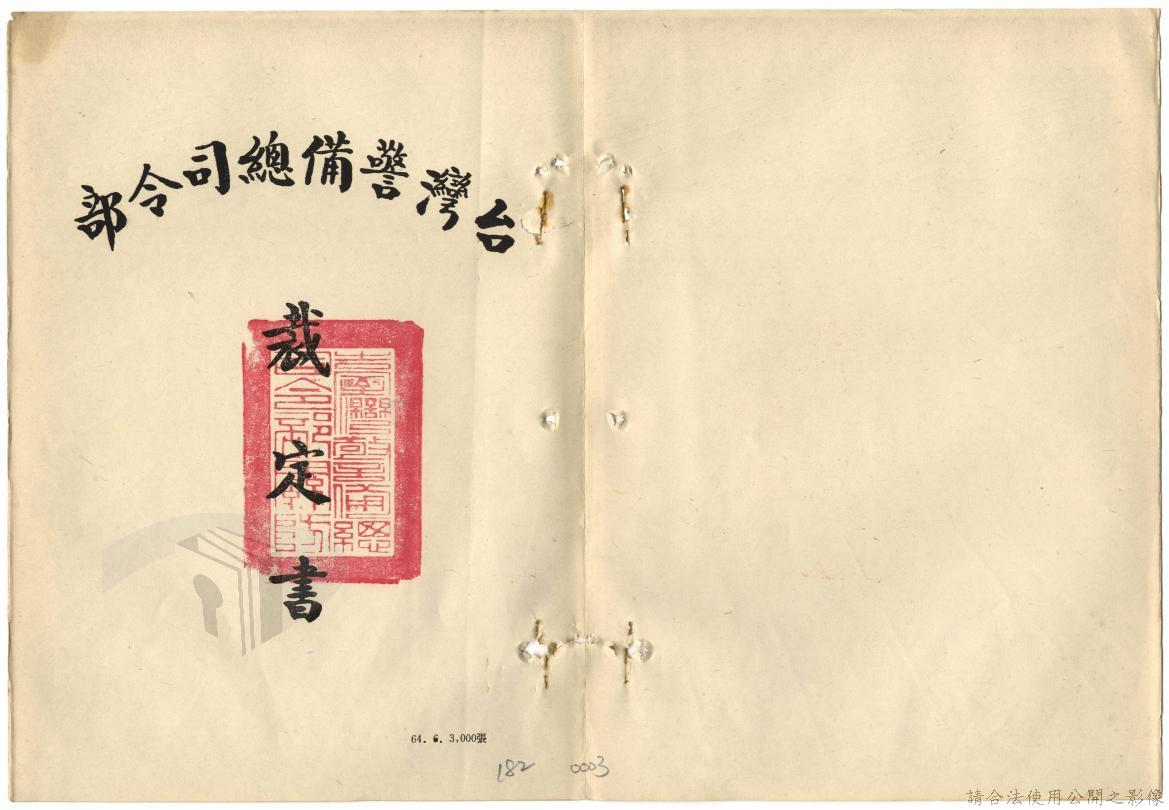 台灣警備總司令部
裁定書
臺灣警備總
司令部關防
64. 6. 3,000張
182 0003
請合法使用公開之影像